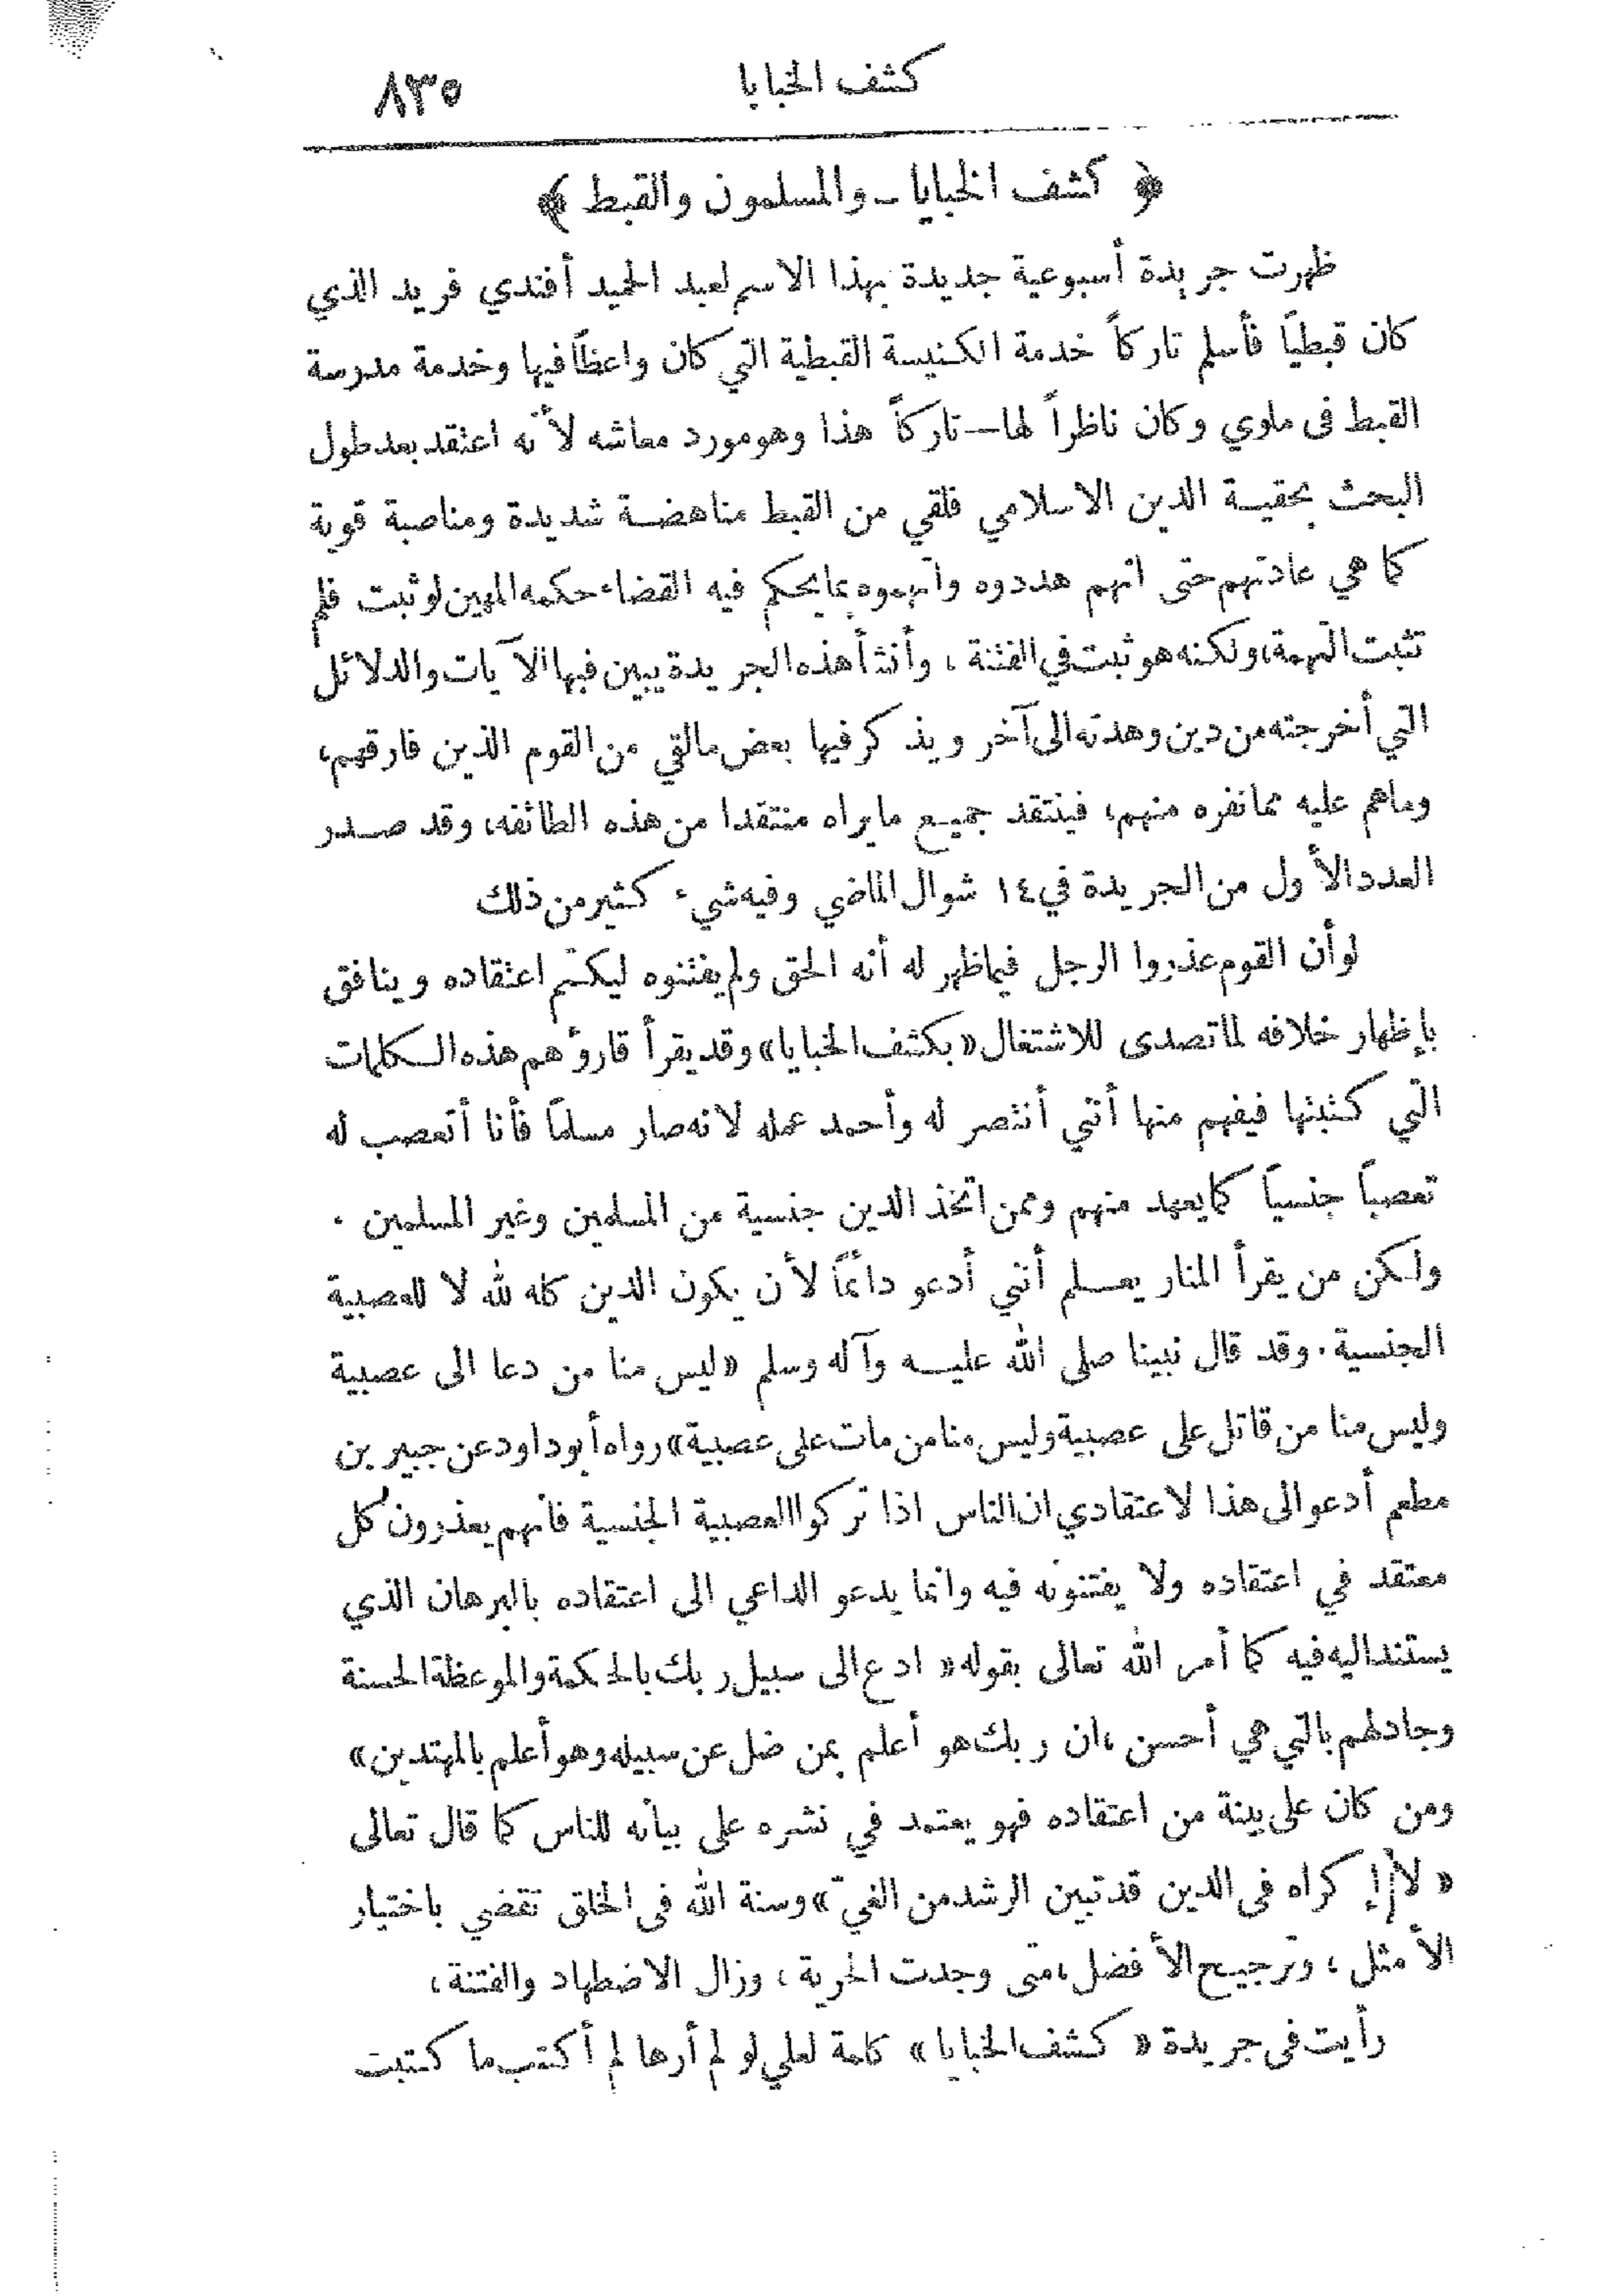 كشف الخبايا ٨٣٥
﴿ كشف الخبايا ـ والمسلمون والقبط ﴾
ظهرت جريدة أسبوعية جديدة بهذا الاسم لعبد الحميد أفندي فريد الذي
كان قبطياً فأسلم تاركاً خدمة الكنيسة القبطية التي كان واعظاً فيها وخدمة مدرسة
القبط فى ملوي وكان ناظراً لها — تاركاً هذا وهو مورد معاشه لأنه اعتقد بعد طول
البحث بحقية الدين الاسلامي فلقي من القبط مناهضة شديدة ومناصبة قوية
كما هي عادتهم حتى انهم هددوه واتهموه بما يحكم فيه القضاء حكمه المهين لو ثبت فلم
تثبت التهمة، ولكنه هو ثبت في الفتنة ، وأنشأ هذه الجريدة يبين فيها الآيات والدلائل
التي أخرجته من دين وهدته الى آخر ويذكر فيها بعض مالقي من القوم الذين فارقهم،
وماهم عليه مما نفره منهم، فينتقد جميع مايراه منتقدا من هذه الطائفه، وقد صدر
العدد الأول من الجريدة في ١٤ شوال الماضي وفيه شيء كثير من ذلك
لو أن القوم عذروا الرجل فيما ظهر له أنه الحق ولم يفتنوه ليكتم اعتقاده وينافق
بإظهار خلافه لما تصدى للاشتغال «بكشف الخبايا» وقد يقرأ قارؤهم هذه الكلمات
التي كتبتها فيفهم منها أنني أنتصر له وأحمد عمله لانه صار مسلماً فأنا أتعصب له
تعصباً جنسياً كما يعهد منهم وممن اتخذ الدين جنسية من المسلمين وغير المسلمين .
ولكن من يقرأ المنار يعلم أنني أدعو دائماً لأن يكون الدين كله لله لا للعصبية
الجنسية . وقد قال نبينا صلى الله عليه وآله وسلم «ليس منا من دعا الى عصبية
وليس منا من قاتل على عصبية وليس منا من مات على عصبية» رواه أبو داود عن جبير بن
مطعم أدعو الى هذا لاعتقادي ان الناس اذا تركوا العصبية الجنسية فانهم يعذرون كل
معتقد في اعتقاده ولا يفتنونه فيه وانما يدعو الداعي الى اعتقاده بالبرهان الذي
يستند اليه فيه كما أمر الله تعالى بقوله « ادع الى سبيل ربك بالحكمة والموعظة الحسنة
وجادلهم بالتي هي أحسن ، ان ربك هو أعلم بمن ضل عن سبيله وهو أعلم بالمهتدين »
ومن كان على بينة من اعتقاده فهو يعتمد في نشره على بيانه للناس كما قال تعالى
« لا إكراه فى الدين قد تبين الرشد من الغيّ » وسنة الله فى الخلق تقضي باختيار
الأمثل ، وترجيح الأفضل ، متى وجدت الحرية ، وزال الاضطهاد والفتنة ،
رأيت فى جريدة « كشف الخبايا » كلمة لعلي لو لم أرها لم أكتب ما كتبت